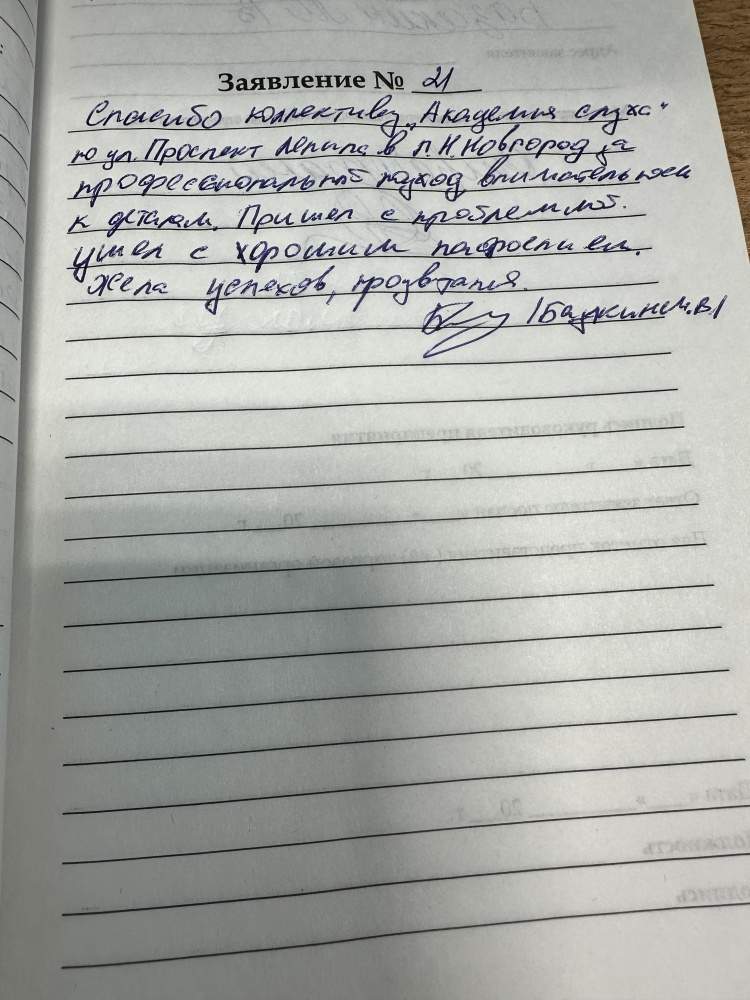 Заявление № 21
Спасибо коллективу „Академия слуха"
по ул. Проспект Ленина в г. Н. Новгород за
профессиональный подход внимательносм
к деталям. Пришел с проблеммой.
ушел с хорошим настроением.
Жела успехов, процветания.